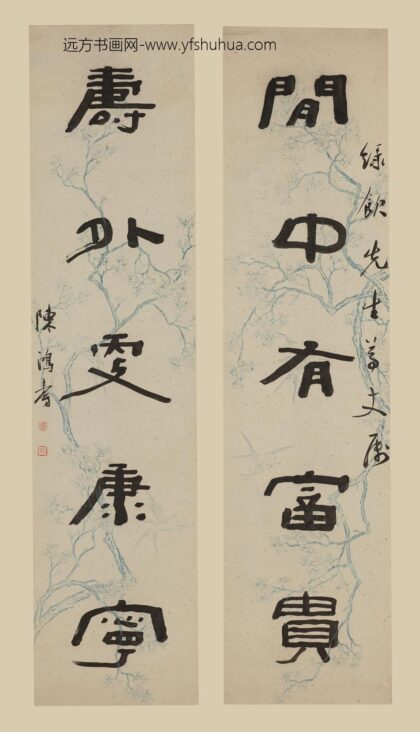 远方书画网-www.yfshuhua.com
綠飲先生尊丈屬
閒中有富貴
壽外更康寧
陳鴻壽